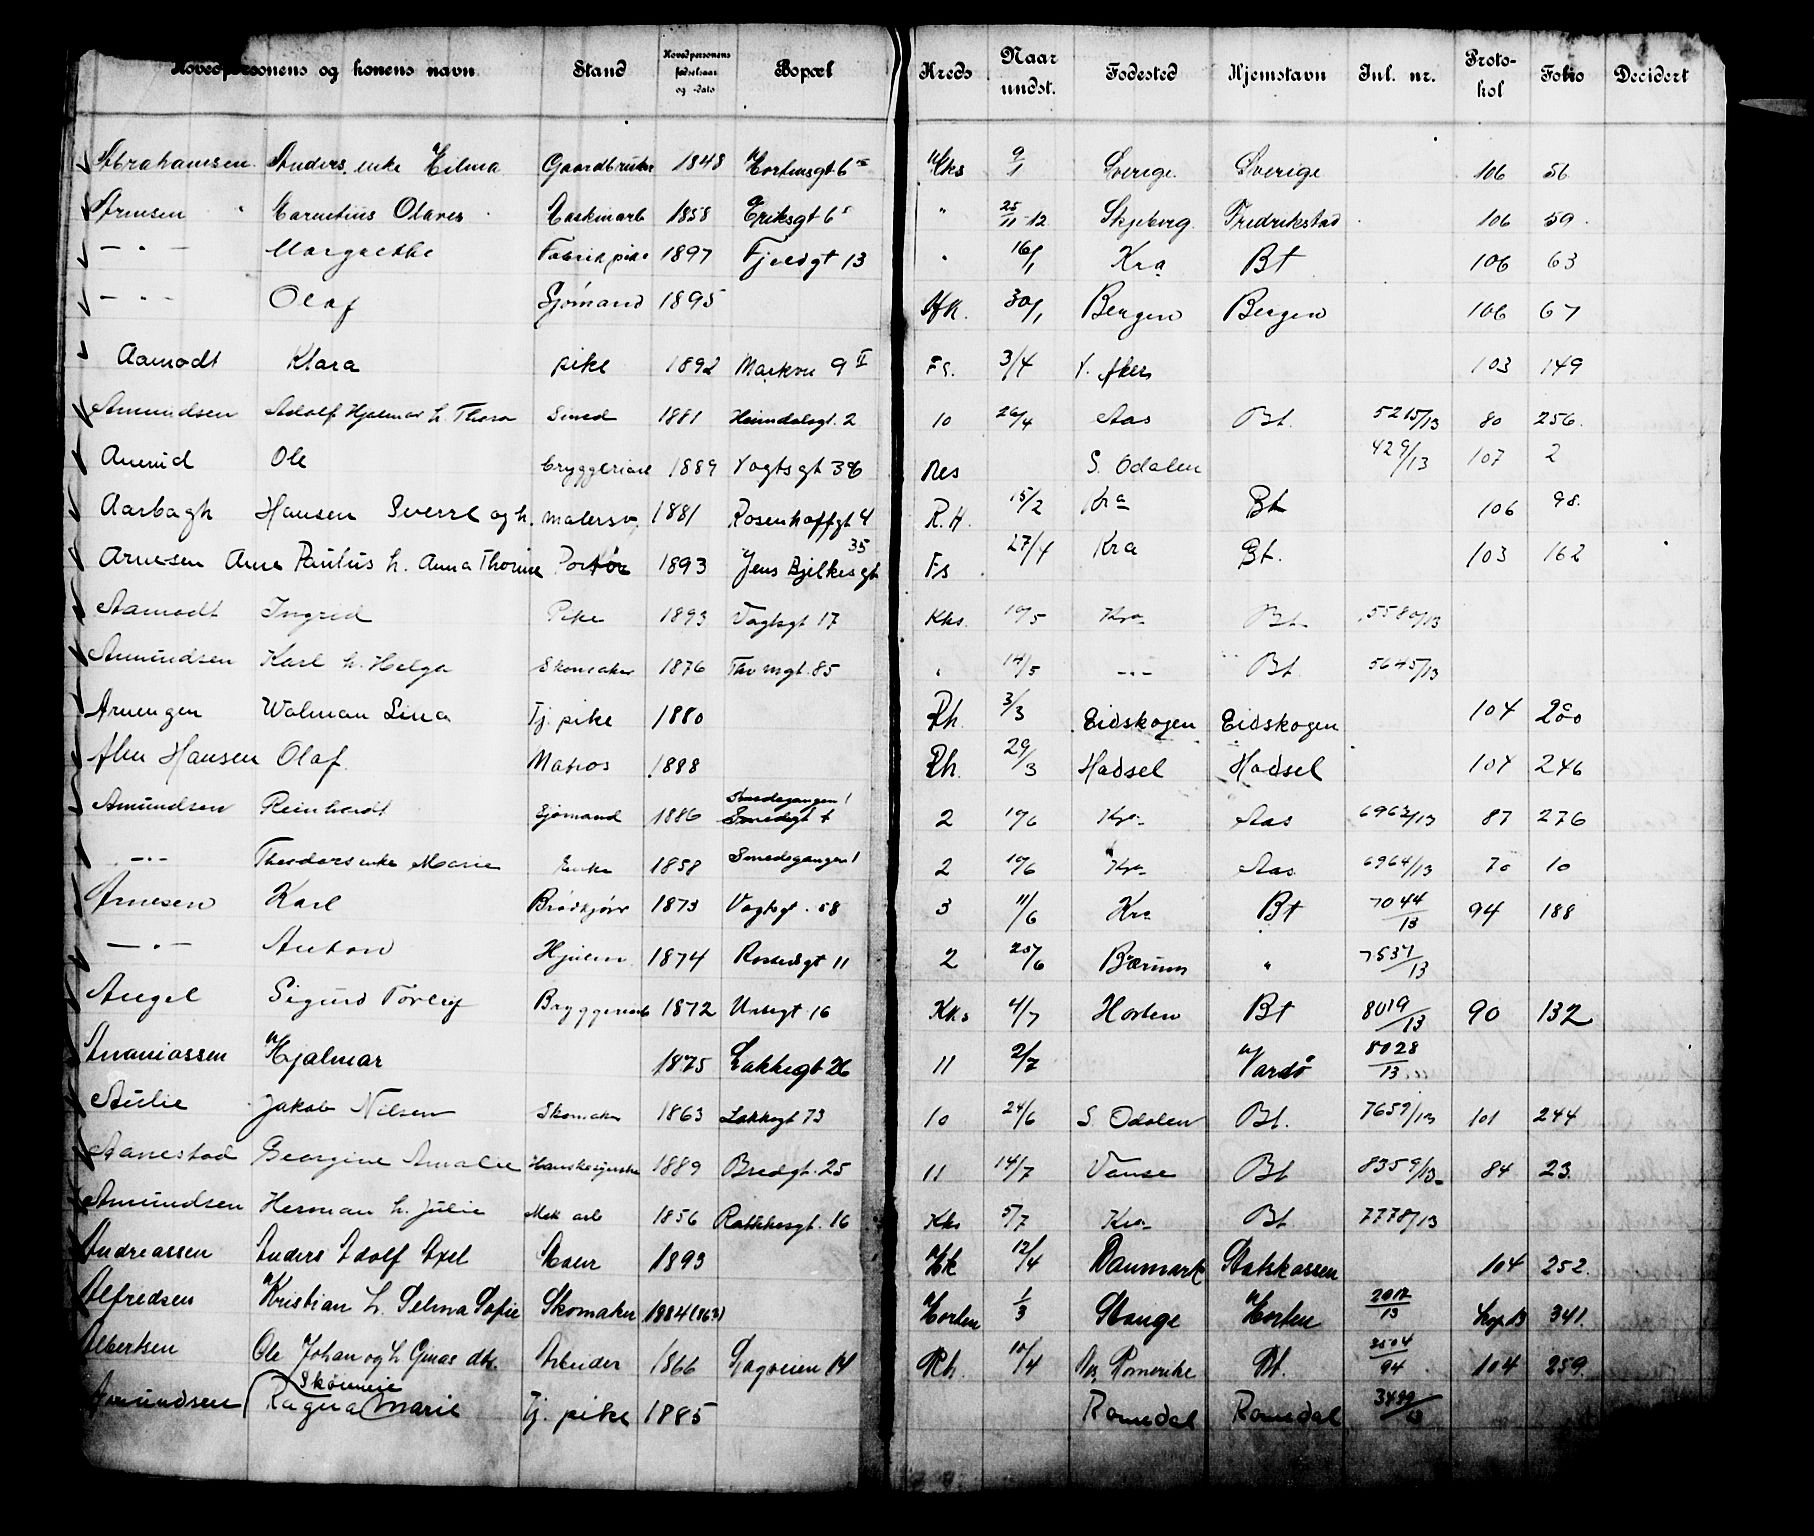 Hovedpersonens og konens navn Stand Hovedpersonens fødselsaar og -dato Bopæl Kreds Naar undst. Fødested Hjemstavn Jnl. nr. Protokol Folio Decidert
Abrahamsen Anders enke Hilma Gaardbruker 1848 Kks 9/1 Sverige Sverige 106 56
Arnesen Olaves 1858 Eriksgt 6 " 25/11-12 Skjeberg Fredrikstad 106 59
— " — Margrethe Fabrikpike 1897 Fjeldgt 13 " 16/1 Kra Bt 106 63
— " — Olaf Sjömand 1895 30/1 Bergen Bergen 106 67
Aamodt Klara pike 1892 Markvn 9 II Fs. 3/4 V. Aker 103 149
Amundsen Adolf Hjalmar h. Thora Smed 1881 Heimdalsgt. 2 10 26/4 Aas Bt. 5215/13 80 256
Ole 1889 Vogtsgt 36 S. Odalen 429/13 107 2
Aarbagh Hansen Sverre og h. malersv. 1881 Rosenhoffgt 4 R.H. 15/2 Kra Bt 106 98
Arnesen Arne Paulus h. Anna Thorine Portør 1893 Jens Bjelkesgt 35 Fs 27/4 Kra Bt. 103 162
Aamodt Ingrid Pike 1893 Vogtsgt 17 Kks. 10/5 Kra Bt 5580/13
Amundsen Karl h. Helga Skomaker 1876 Thv mgt. 85 " 14/5 -"- Bt 5645/13
Arnengen Walman Lina Tj. pike 1880 Rh. 3/3 Eidskogen Eidskogen 104 200
Hansen Olaf Matros 1888 Rh. 29/3 Hadsel Hadsel 104 246
Amundsen Reinhardt Sjömand 1886 Smedegangen 1 2 10/6 Kra Aas 6963/13 87 276
-"- Theodors enke Marie Enke 1858 Smedegangen 1 2 10/6 Kra Aas 6964/13 70 10
Arnesen Karl Brödkjörer 1873 Vogtsgt. 58 3 11/6 Kra Bt 7044/13 94 188
— " — Anton 1874 11 2 25/6 Bærum " 7537/13
Angel Sigurd Torleif Bryggeriarb 1872 Urtegt 16 Kks 4/7 Horten Bt 8019/13 90 132
Ananiassen Hjalmar 1875 Lakkegt 26 11 2/7 Vardø 8028/13
Aulie Jakob Nilsen Skomaker 1863 Lakkegt 73 10 24/6 S. Odalen Bt. 7659/13 101 244
Aanestad Georgine Amalie 1889 Bredgt. 25 11 14/7 Vanse Bt 8359/13 84 23
Amundsen Herman h. Julie Mek arb 1856 Rathkesgt. 16 Kks 5/7 Kra Bt 7778/13
Andreassen Anders Adolf Axel 1893 12/4 Danmark Statskassen 104 252
Alfredsen Kristian h. Selma Sofie Skomaker 1884 Horten 1/3 Stange Horten 341
Albertsen Ole Johan og h. Arbeider 1866 14 Rh. 10/4 Romerike Bt. 104 259
Amundsen Ragna Marie Tj. pike 1885 Romedal Romedal 3499/13